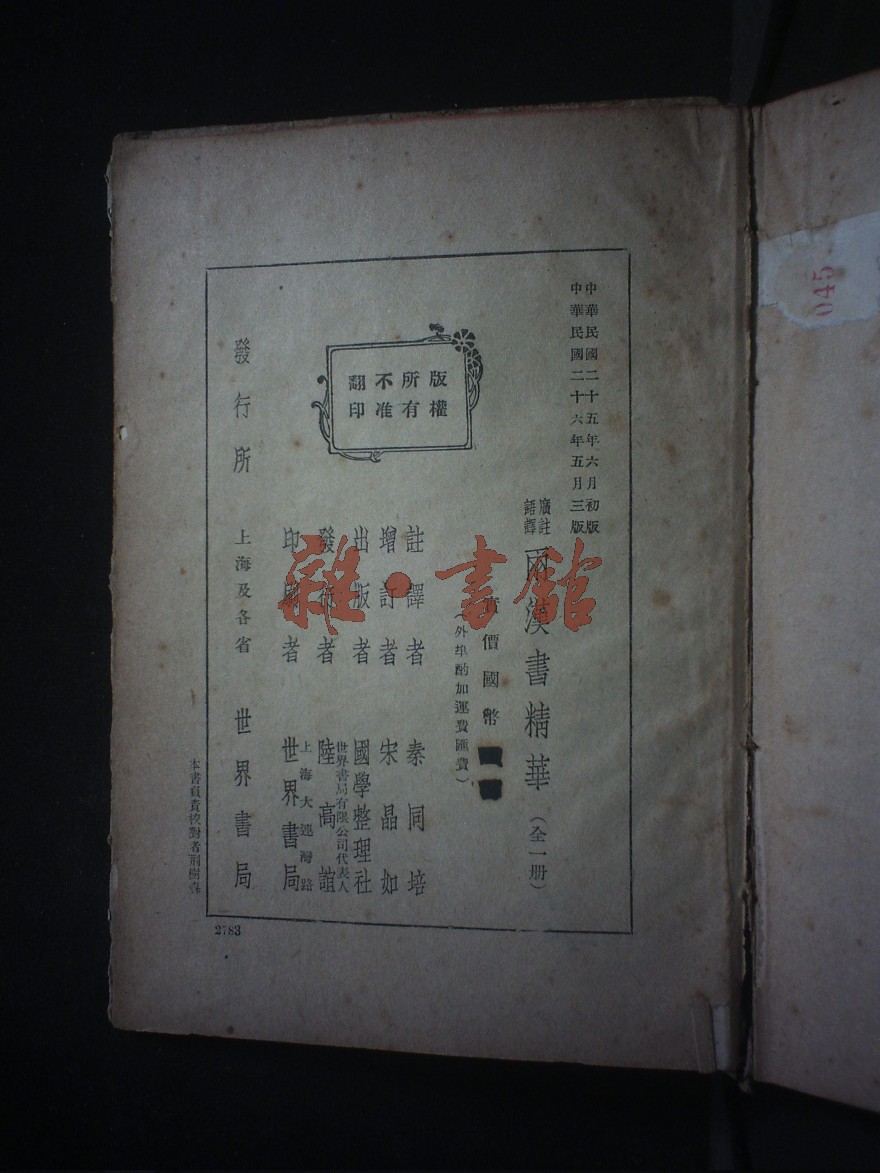 中華民國二十五年六月初版
中華民國二十六年五月三版
廣註
語譯
兩漢書精華（全一册）
實價國幣
（外埠酌加運費匯費）
版權
所有
不准
翻印
註譯者 秦同培
增訂者 宋晶如
出版者 國學整理社
發行者 世界書局有限公司代表人 陸高誼
印刷者 上海大連灣路 世界書局
發行所 上海及各省 世界書局
本書負責校對者荊樹森
2783
045
雜·書館